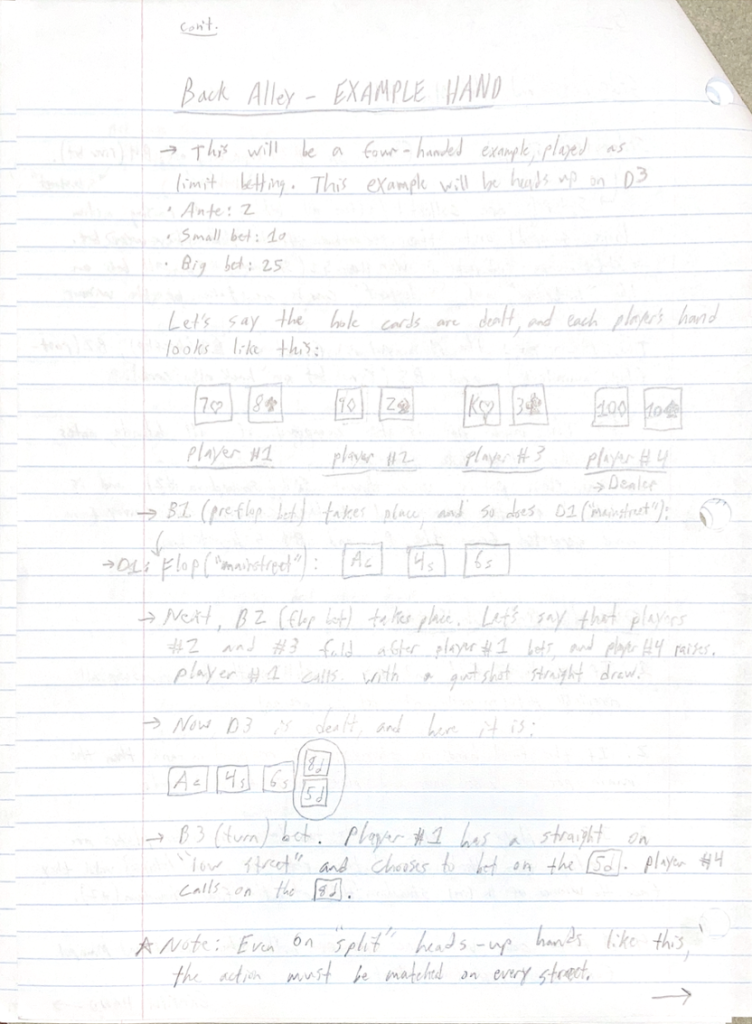 cont.
Back Alley - EXAMPLE HAND
→ This will be a four-handed example, played as
limit betting. This example will be heads up on D3
• Ante: 2
• Small bet: 10
• Big bet: 25
Let's say the hole cards are dealt, and each player's hand
looks like this:
7♡ 8♠ 9◊ 2♣ K♡ 3♣ 10◊ 10♠
player #1 player #2 player #3 player #4
→ Dealer
→ B1 (preflop bet) takes place, and so does D1 ("mainstreet"):
→ D1: Flop ("mainstreet"): Ac 4s 6s
→ Next, B2 (flop bet) takes place. Let's say that players
#2 and #3 fold after player #1 bets, and player #4 raises.
player #1 calls with a gutshot straight draw.
→ Now D3 is dealt, and here it is:
8d
Ac 4s 6s
5d
→ B3 (turn) bet. Player #1 has a straight on
"low street" and chooses to bet on the 5d. player #4
calls on the 8d.
☆ Note: Even on "split" heads-up hands like this,
the action must be matched on every street.
→